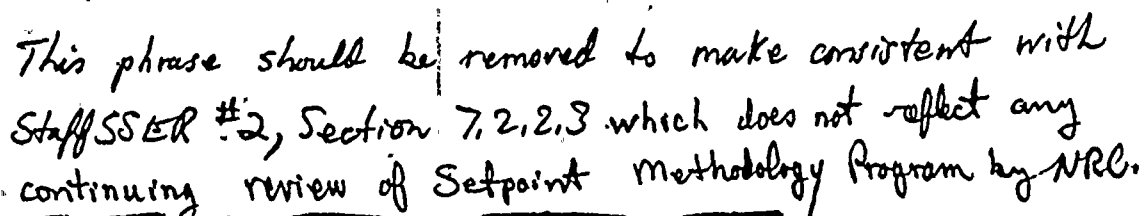 This phrase should be removed to make consistent with
Staff SSER #2, Section 7.2.2.3 which does not reflect any
continuing review of Setpoint Methodology Program by NRC.